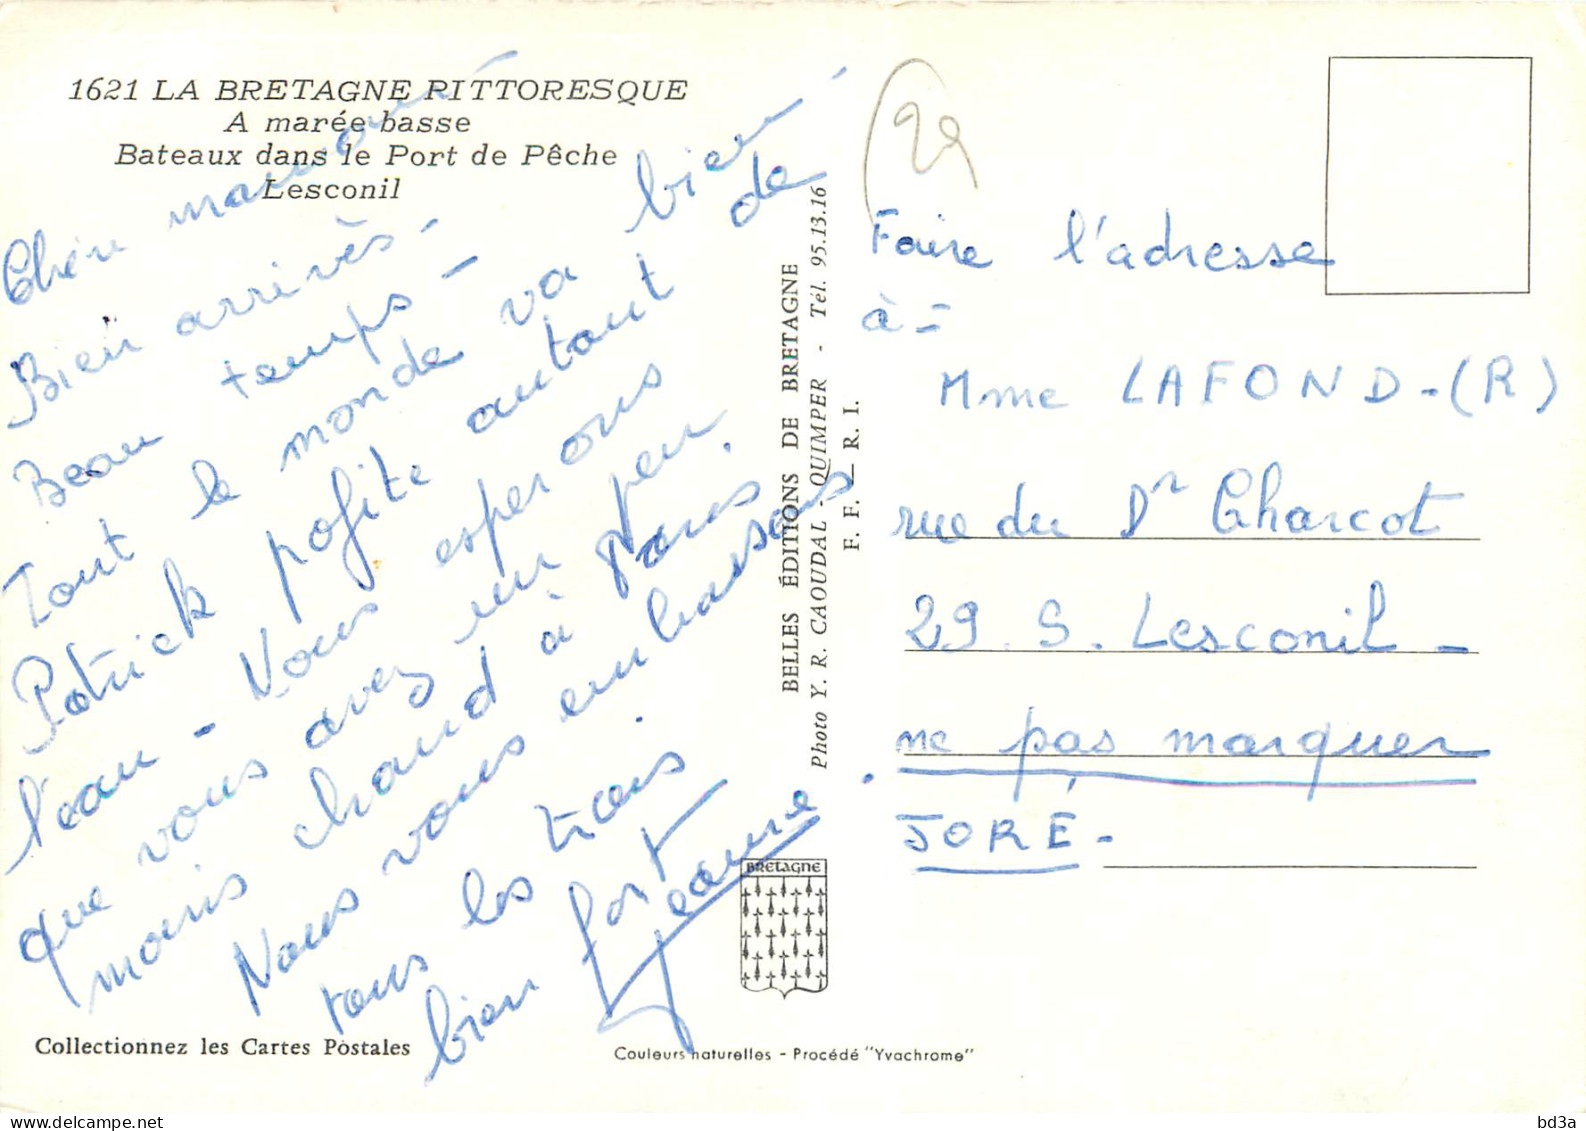 1621 LA BRETAGNE PITTORESQUE
A marée basse
Bateaux dans le Port de Pêche
Lesconil
Bien arrivès -
Beau temps -
Tout le monde va bien
Patrick pofite autant de
l'eau - Vous esperons
que vous avez un peu
moins chaud à Paris.
Nous vous embassons
tous les trois
bien fort
Jeanne.
Collectionnez les Cartes Postales
BELLES ÉDITIONS DE BRETAGNE
Photo Y. R. CAOUDAL - QUIMPER - Tél. 95.13.16
F. F. — R. I.
BRETAGNE
Couleurs naturelles - Procédé "Yvachrome"
29
Faire l'adresse
à =
Mme LAFOND - (R)
rue du Dr Charcot
29. S. Lesconil -
ne pas marquer
JORÉ -
bd3a